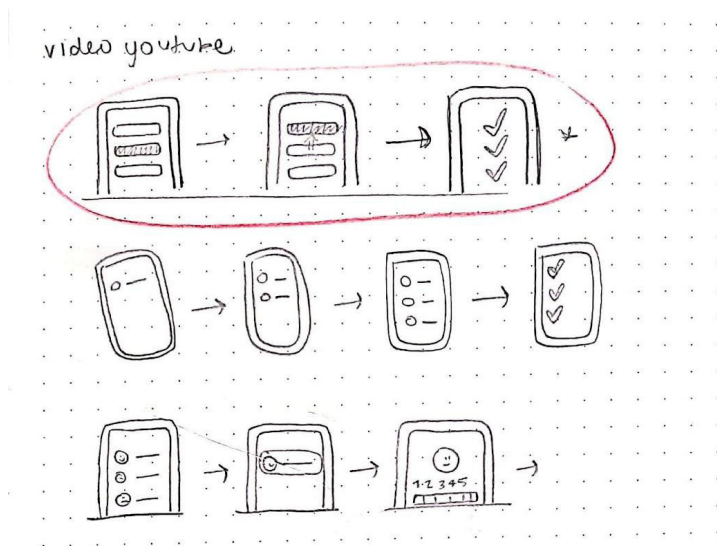 video youtube
1 2 3 4 5